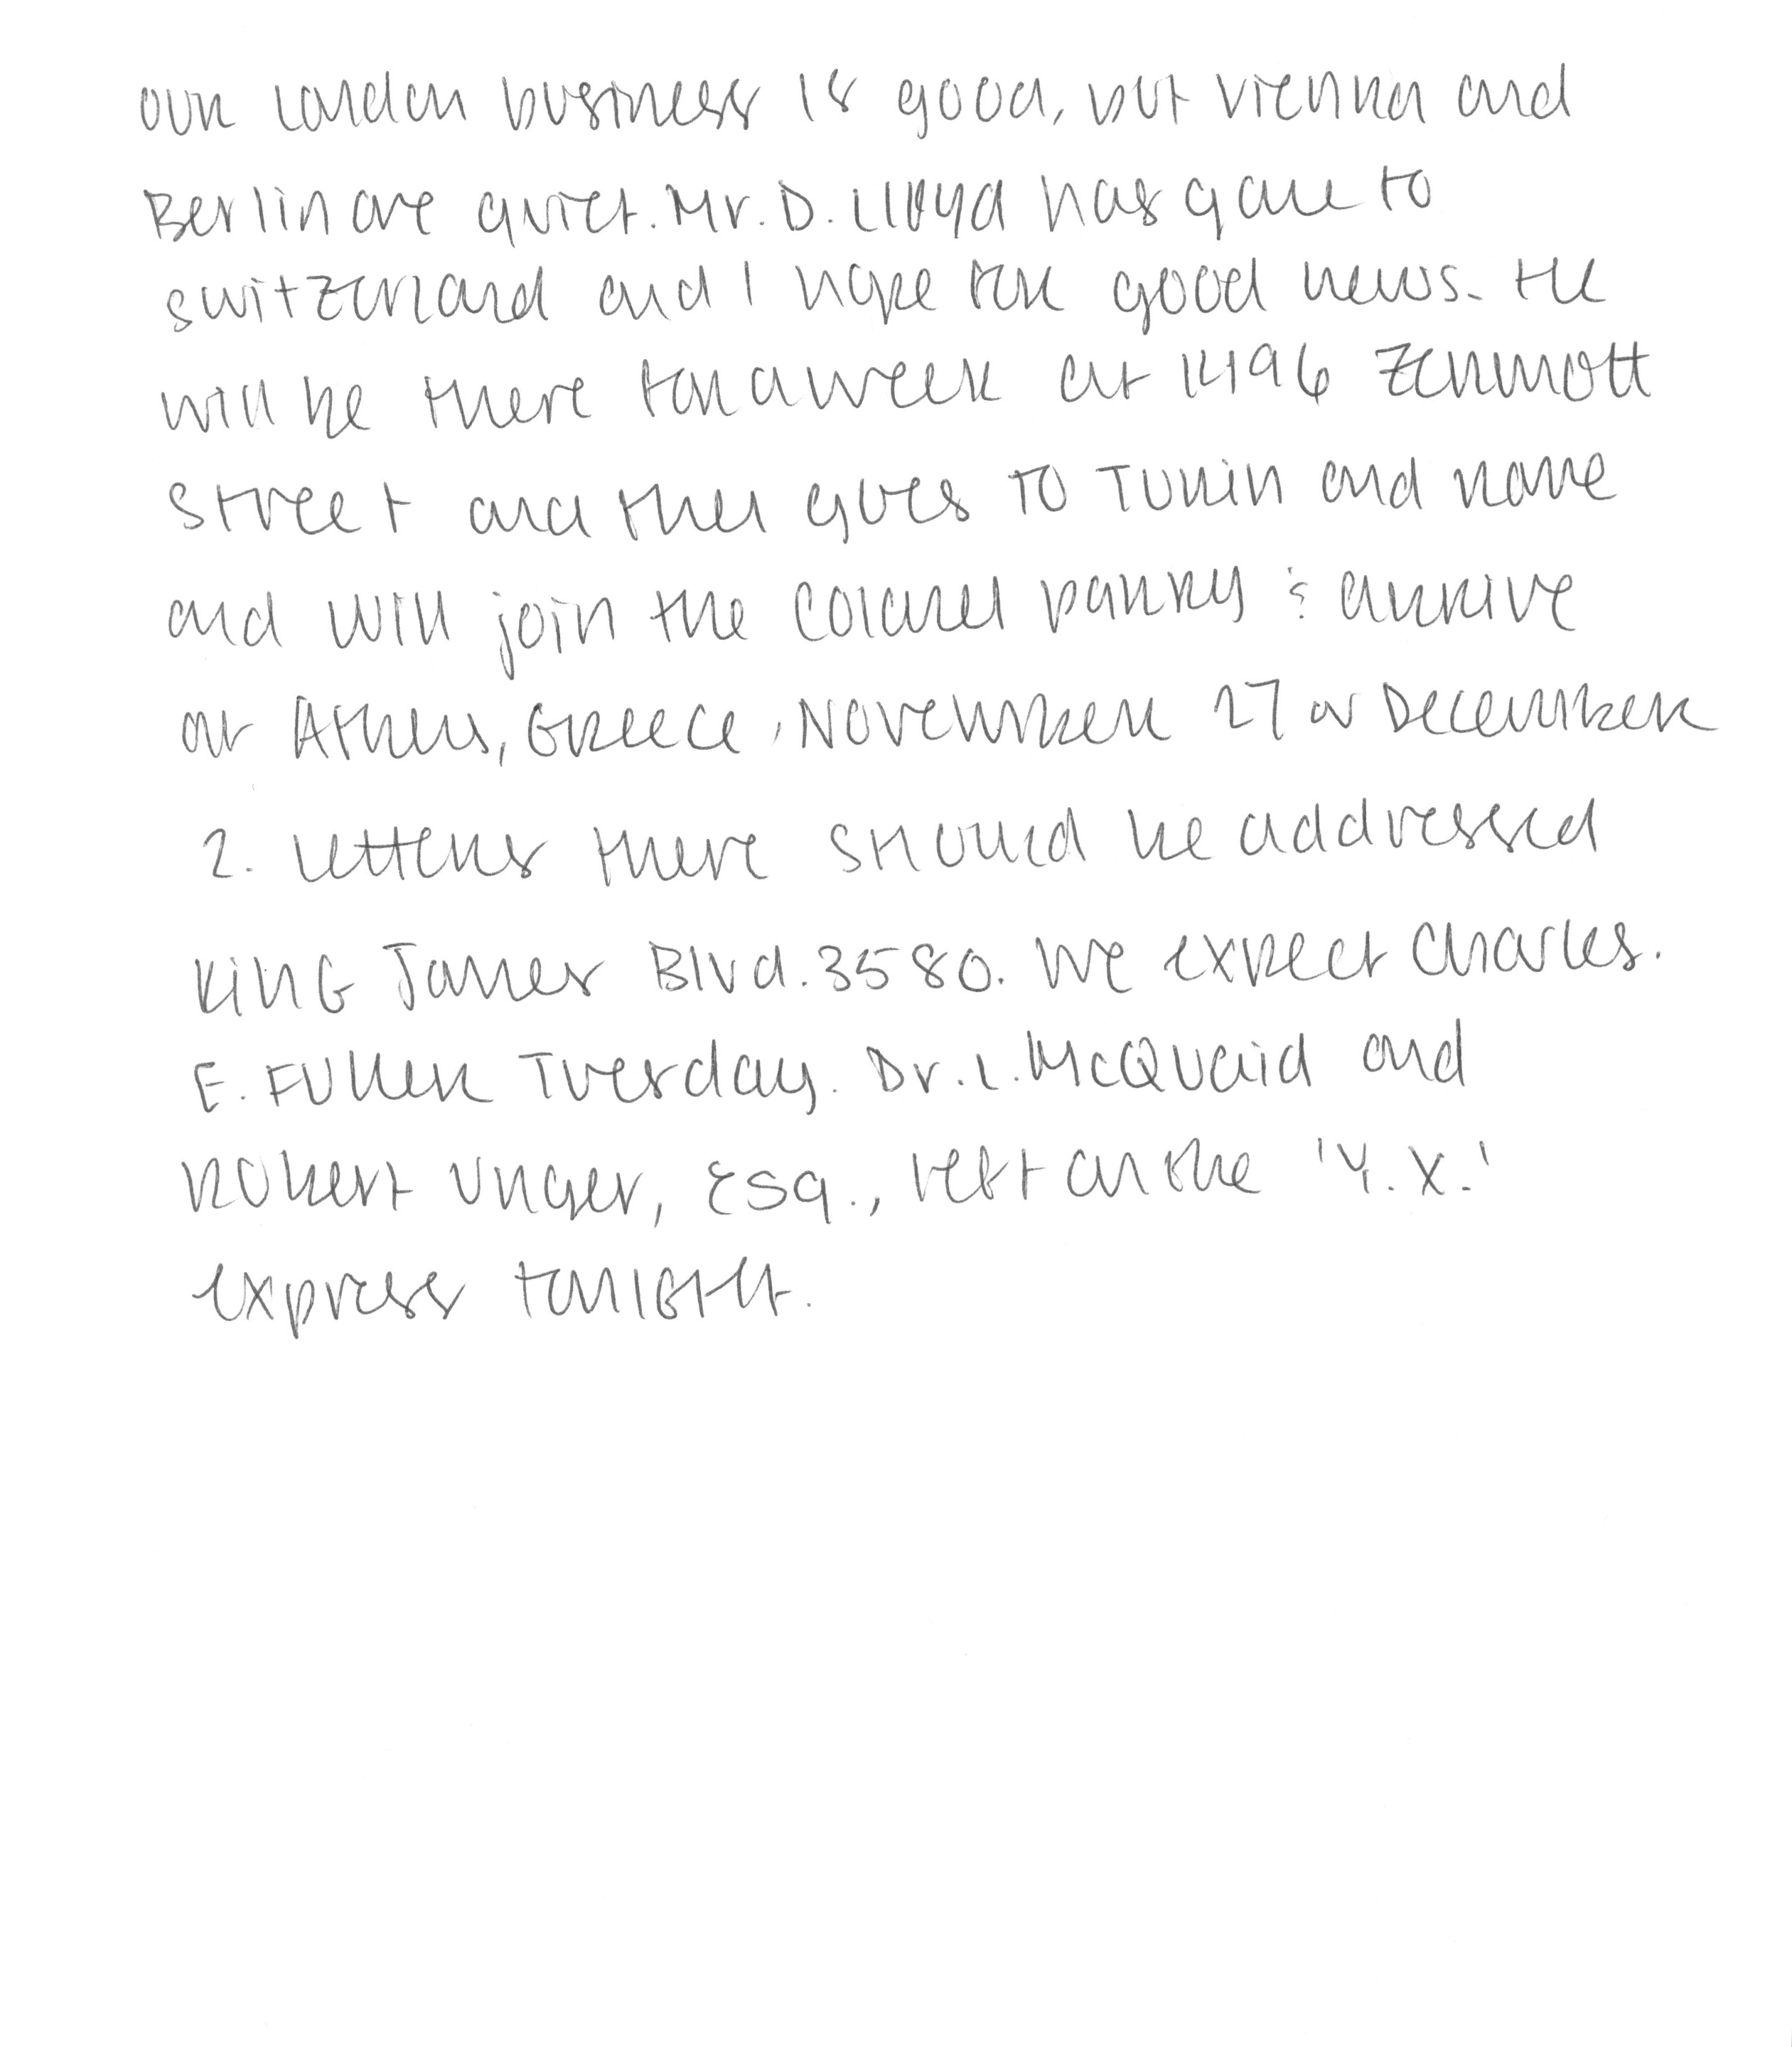 Our London business is good, but Vienna and
Berlin are quiet. Mr. D. Lloyd has gone to
Switzerland and I hope for good news. He
will be there for a week at 1496 Zermott
Street and then goes to Turin and Rome
and will join the Colonel Parry & arrive
at Athens, Greece, November 27 or December
2. Letters there should be addressed
King James Blvd. 3580. We expect Charles.
E. Fuller Tuesday. Dr. L. McQuaid and
Robert Unger, Esq., left on the 'Y.X.'
express tonight.